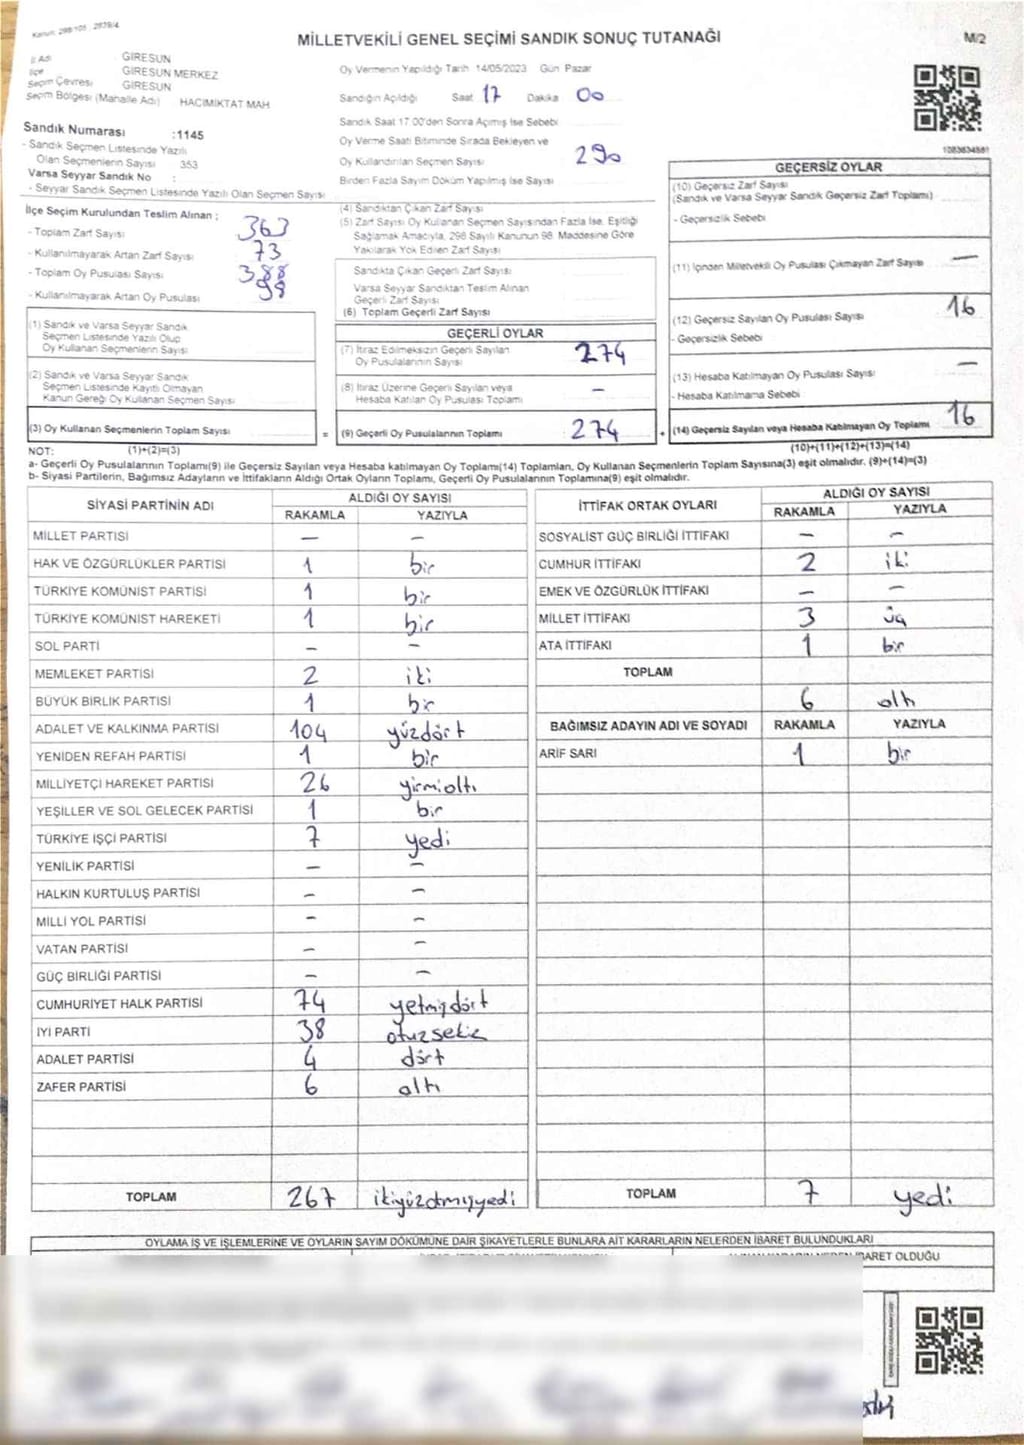 Kanun: 298/105 , 2839/4
MİLLETVEKİLİ GENEL SEÇİMİ SANDIK SONUÇ TUTANAĞI
M/2
İl Adı : GİRESUN
İlçe : GİRESUN MERKEZ
Seçim Çevresi : GİRESUN
Seçim Bölgesi (Mahalle Adı) : HACIMİKTAT MAH
Sandık Numarası :1145
- Sandık Seçmen Listesinde Yazılı
Olan Seçmenlerin Sayısı : 353
Varsa Seyyar Sandık No :
- Seyyar Sandık Seçmen Listesinde Yazılı Olan Seçmen Sayısı
Oy Vermenin Yapıldığı Tarih 14/05/2023 Gün Pazar
Sandığın Açıldığı Saat 17 Dakika 00
Sandık Saat 17:00'den Sonra Açımış İse Sebebi
Oy Verme Saati Bitiminde Sırada Bekleyen ve
Oy Kullandırılan Seçmen Sayısı 290
Birden Fazla Sayım Döküm Yapılmış İse Sayısı
1083634581
İlçe Seçim Kurulundan Teslim Alınan ;
- Toplam Zarf Sayısı : 363
- Kullanılmayarak Artan Zarf Sayısı : 73
- Toplam Oy Pusulası Sayısı : 388
- Kullanılmayarak Artan Oy Pusulası : 98
(1) Sandık ve Varsa Seyyar Sandık
Seçmen Listesinde Yazılı Olup
Oy Kullanan Seçmenlerin Sayısı
(2) Sandık ve Varsa Seyyar Sandık
Seçmen Listesinde Kayıtlı Olmayan
Kanun Gereği Oy Kullanan Seçmen Sayısı
(3) Oy Kullanan Seçmenlerin Toplam Sayısı
(1)+(2)=(3)
(4) Sandıktan Çıkan Zarf Sayısı
(5) Zarf Sayısı Oy Kullanan Seçmen Sayısından Fazla İse, Eşitliği
Sağlamak Amacıyla, 298 Sayılı Kanunun 98. Maddesine Göre
Yakılarak Yok Edilen Zarf Sayısı
Sandıkta Çıkan Geçerli Zarf Sayısı:
Varsa Seyyar Sandıktan Teslim Alınan
Geçerli Zarf Sayısı
(6) Toplam Geçerli Zarf Sayısı
GEÇERLİ OYLAR
(7) İtiraz Edilmeksizin Geçerli Sayılan
Oy Pusulalarının Sayısı 274
(8) İtiraz Üzerine Geçerli Sayılan veya
Hesaba Katılan Oy Pusulası Toplamı –
= (9) Geçerli Oy Pusulalarının Toplamı 274
GEÇERSİZ OYLAR
(10) Geçersiz Zarf Sayısı
(Sandık ve Varsa Seyyar Sandık Geçersiz Zarf Toplamı)
- Geçersizlik Sebebi
(11) İçinden Milletvekili Oy Pusulası Çıkmayan Zarf Sayısı —
(12) Geçersiz Sayılan Oy Pusulası Sayısı 16
- Geçersizlik Sebebi
(13) Hesaba Katılmayan Oy Pusulası Sayısı –
- Hesaba Katılmama Sebebi
+ (14) Geçersiz Sayılan veya Hesaba Katılmayan Oy Toplamı 16
(10)+(11)+(12)+(13)=(14)
NOT:
a- Geçerli Oy Pusulalarının Toplamı(9) ile Geçersiz Sayılan veya Hesaba katılmayan Oy Toplamı(14) Toplamları, Oy Kullanan Seçmenlerin Toplam Sayısına(3) eşit olmalıdır. (9)+(14)=(3)
b- Siyasi Partilerin, Bağımsız Adayların ve İttifakların Aldığı Ortak Oyların Toplamı, Geçerli Oy Pusulalarının Toplamına(9) eşit olmalıdır.
SİYASİ PARTİNİN ADI ALDIĞI OY SAYISI
RAKAMLA YAZIYLA
MİLLET PARTİSİ — –
HAK VE ÖZGÜRLÜKLER PARTİSİ 1 bir
TÜRKİYE KOMÜNİST PARTİSİ 1 bir
TÜRKİYE KOMÜNİST HAREKETİ 1 bir
SOL PARTİ – –
MEMLEKET PARTİSİ 2 iki
BÜYÜK BİRLİK PARTİSİ 1 bir
ADALET VE KALKINMA PARTİSİ 104 yüzdört
YENİDEN REFAH PARTİSİ 1 bir
MİLLİYETÇİ HAREKET PARTİSİ 26 yirmialtı
YEŞİLLER VE SOL GELECEK PARTİSİ 1 bir
TÜRKİYE İŞÇİ PARTİSİ 7 yedi
YENİLİK PARTİSİ – –
HALKIN KURTULUŞ PARTİSİ – –
MİLLİ YOL PARTİSİ – –
VATAN PARTİSİ – –
GÜÇ BİRLİĞİ PARTİSİ – –
CUMHURİYET HALK PARTİSİ 74 yetmişdört
İYİ PARTİ 38 otuzsekiz
ADALET PARTİSİ 4 dört
ZAFER PARTİSİ 6 altı
TOPLAM 267 ikiyüzatmışyedi
İTTİFAK ORTAK OYLARI ALDIĞI OY SAYISI
RAKAMLA YAZIYLA
SOSYALİST GÜÇ BİRLİĞİ İTTİFAKI – –
CUMHUR İTTİFAKI 2 iki
EMEK VE ÖZGÜRLÜK İTTİFAKI – –
MİLLET İTTİFAKI 3 üç
ATA İTTİFAKI 1 bir
TOPLAM
6 altı
BAĞIMSIZ ADAYIN ADI VE SOYADI RAKAMLA YAZIYLA
ARİF SARI 1 bir
TOPLAM 7 yedi
OYLAMA İŞ VE İŞLEMLERİNE VE OYLARIN SAYIM DÖKÜMÜNE DAİR ŞİKAYETLERLE BUNLARA AİT KARARLARIN NELERDEN İBARET BULUNDUKLARI
İBARET OLDUĞU